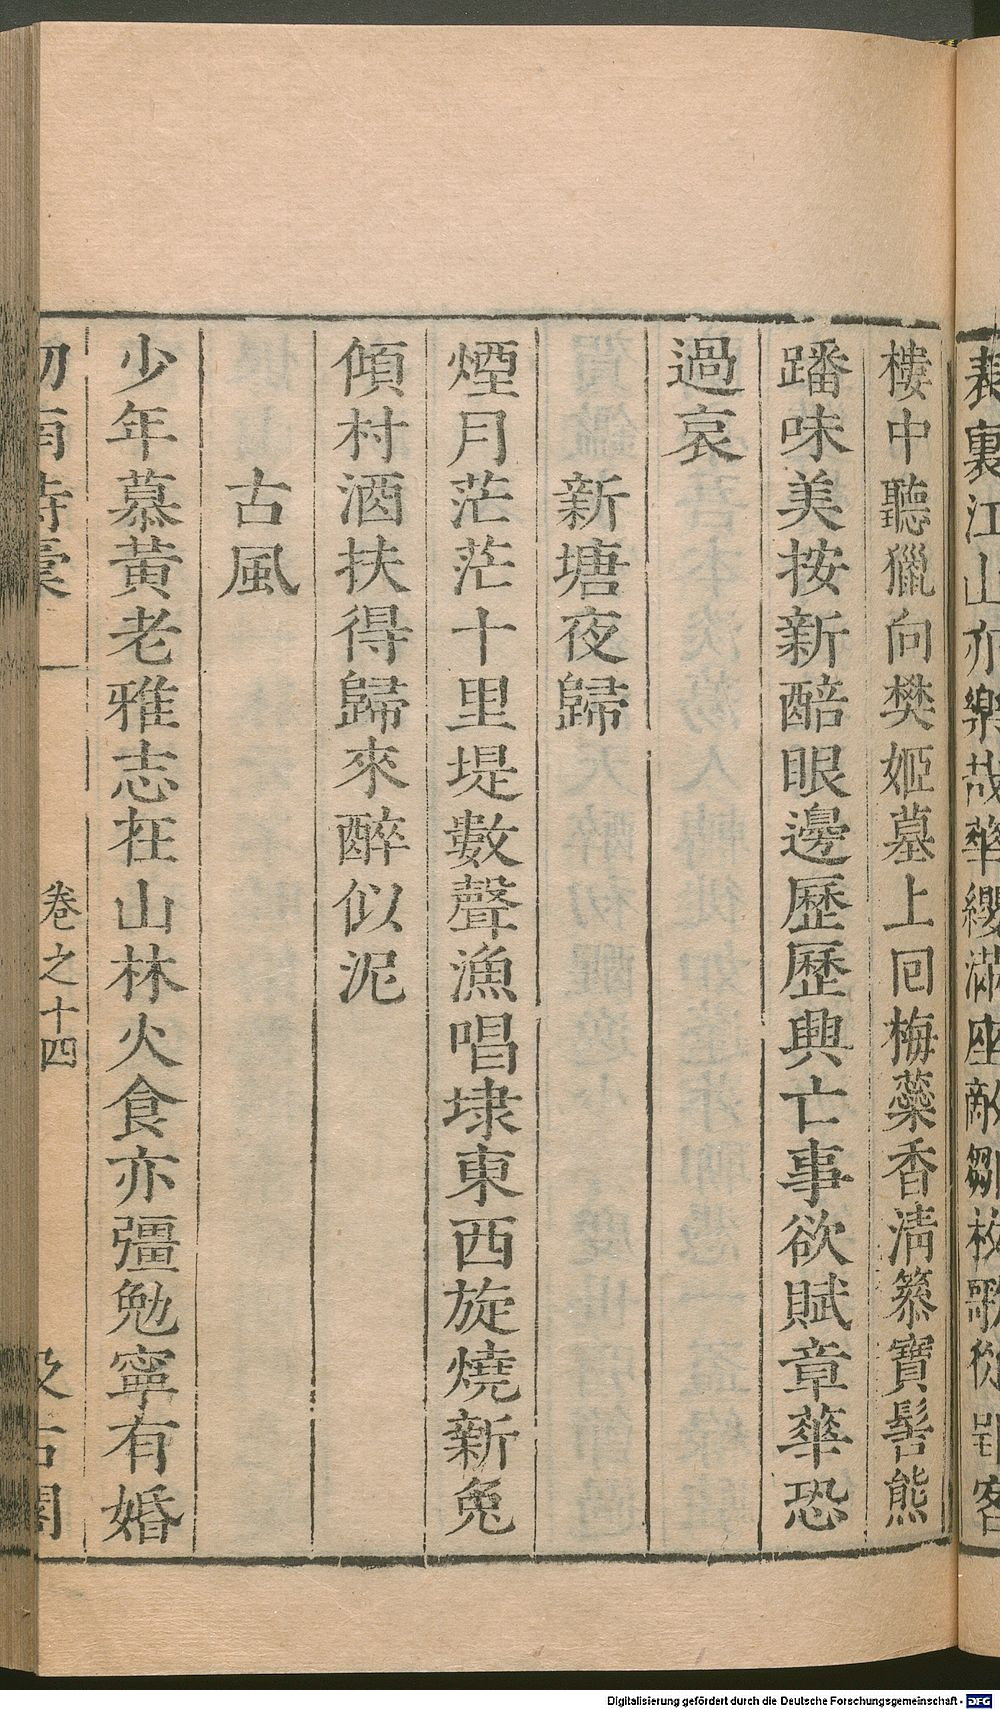 表裏江山亦樂哉華纓滿座敵鄒枚歌從郢客
樓中聽獵向樊姬墓上回梅蘂香清簪寶髻熊
蹯味美按新醅眼邊歷歷興亡事欲賦章華恐
過哀
新塘夜歸
煙月茫茫十里堤數聲漁唱埭東西旋燒新兔
傾村酒扶得歸來醉似泥
古風
少年慕黃老雅志在山林火食亦彊勉寧有婚
劍南詩稾
卷之十四
汲古閣
Digitalisierung gefördert durch die Deutsche Forschungsgemeinschaft - DFG